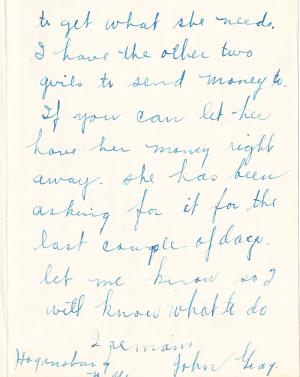 to get what she needs.
I have the other two
grils to send money to.
If you can let her
have her money right
away. she has been
asking for it for the
last couple of days.
let me know so I
will know what to do
I remain
Hogansburg John Gray.
N.Y.